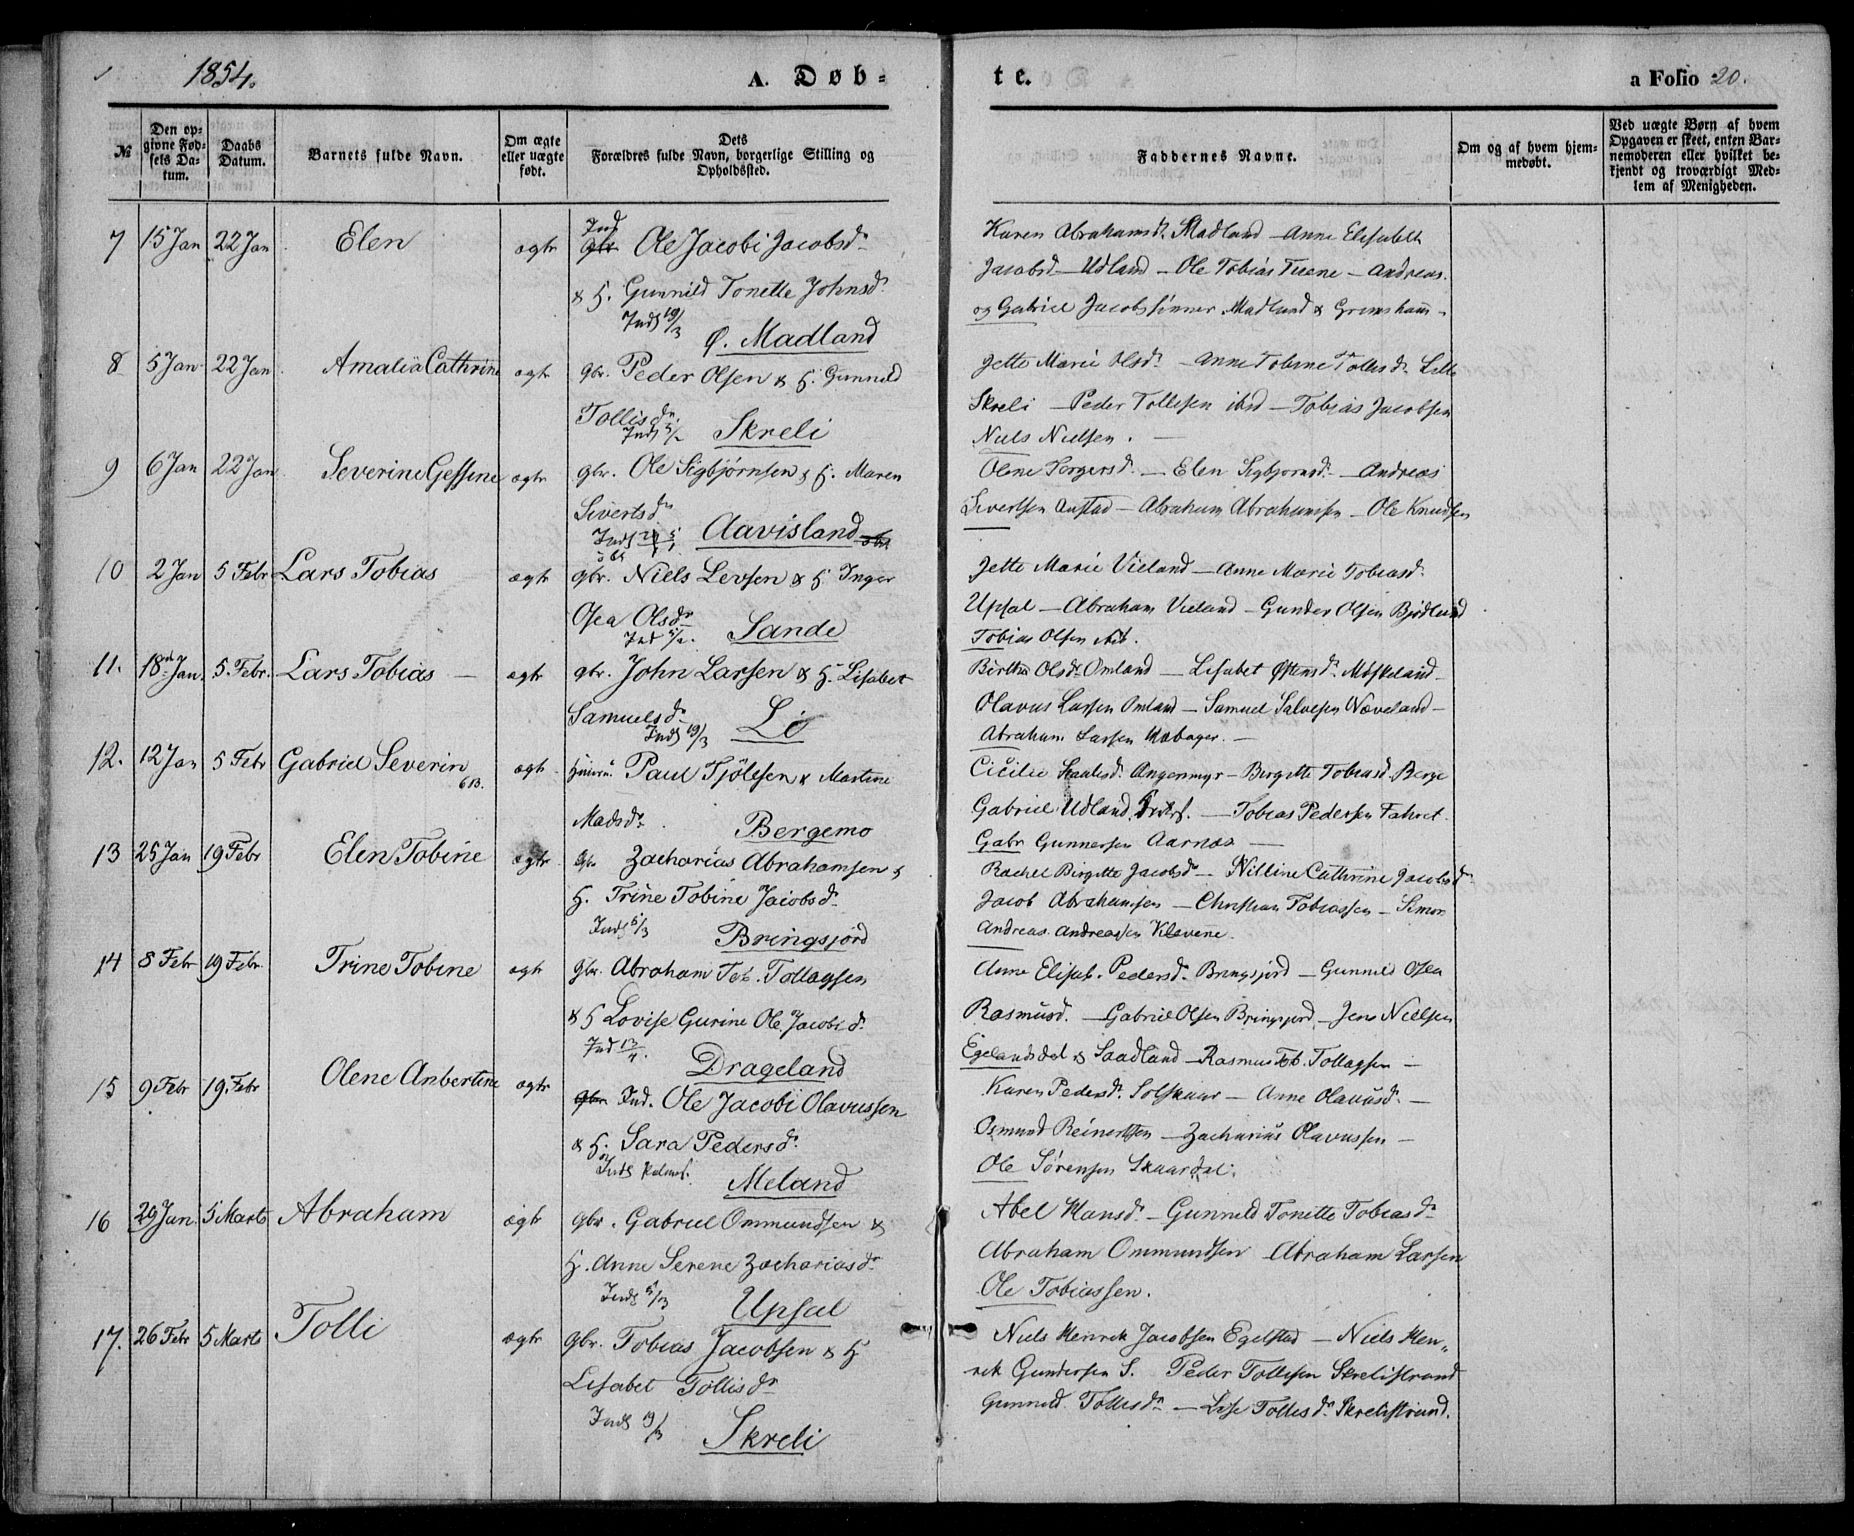 1854.
A. Døb-
te.
a Folio 20.
№
Den opgivne Fødsels Datum.
Daabs Datum.
Barnets fulde Navn.
Om ægte eller uægte født.
Dets Forældres fulde Navn, borgerlige Stilling og Opholdssted.
Faddernes Navne.
Om og af hvem hjemmedøbt.
Ved uægte Børn af hvem Opgaven er skeet, enten Barnemoderen eller hvilket bekjendt og troværdigt Medlem af Menigheden.
7 15 Jan 22 Jan Elen ægtе Ind gbr. Ole Jacobi Jacobsd.
& H. Gunnild Tonette Johnsd.
Inds 19/3 Ø. Madland
Karen Abrahamsd. Madland - Anne Elisabeth
Jacobsd - Udland - Ole Tobias Tuene - Andreas
og Gabriel Jacobsinner Madland & Grimsham
8 5 Jan 22 Jan Amalia Cathrine ægtе gbr. Peder Olsen & H. Gunnild
Tollisdr. Inds 5/2 Skreli
Jette Marie Olsd. - Anne Tobine Tollisd. Lille
Skreli - Peder Tollesen ibid - Tobias Jacobsen
Niels Nielsen.
9 6 Jan 22 Jan Severine Gessine ægtе gbr. Ole Sigbjørnsen & H. Maren
Sivertsdr
Inds Aavisland
Olene Torgersd. - Elen Sigbjørnsd. - Andreas
Sivertsen Austad - Abraham Abrahamsen - Ole Knudsen
10 2 Jan 5 Febr Lars Tobias ægtе gbr. Niels Levsen & H Inger
Osea Olsdr
Ind 5/2. Sande
Jette Marie Vieland - Anne Marie Tobiasd.
Upsal - Abraham Vieland - Gunder Olsen Bjødland
Tobias Olsen
11. 18 Jan 5. Febr. Lars Tobias - ægtе gbr. John Larsen & H. Lisabet
Samuelsdr
Inds 19/3 Lø
Birthe Olsd. Omland - Lisabet Østensd. Møskeland
Olavus Larsen Omland - Samuel Salvesen Næveland -
Abraham Larsen
12. 12 Jan 5 Febr Gabriel Severin ægtе Paul Tjølsen & Martine
613.
Madsdr. Bergemo
Cicilie Angermyr - Birgitte Tobiasd. Berge
Gabriel Udland - Tobias Pedersen Fahret
Gabr Gunnersen Aarnæs -
13 25 Jan 19 Febr Elen Tobine ægtе Gbr Zacharias Abrahamsen &
H. Trine Tobine Jacobsd.
Inds 5/3 Bringsjord
Rachel Birgitte Jacobsd - Nilline Cathrine Jacobsd.
Jacob Abrahamsen - Christian Tobiassen - Simon
Andreas Andreassen Klevene.
14 8 Febr 19 Febr Trine Tobine ægtе gbr. Abraham Tob. Tollagsen
& H Lovise Gurine Ole Jacobsd.
Ind 13/4. Drageland
Anne Elisab. Pedersd. Bringsjord - Gunnild Osea
Rasmusd. - Gabriel Olsen Bringsjord - Jens Nielsen
Egelandsdal & Saadland - Rasmus Tob. Tollagsen -
15 9 Febr 19. Febr Olene Anbertine ægtе gbr Ind. Ole Jacobi Olavussen
& H. Sara Pedersdr
Inds Meland
Karen Pedersd. Solskaar - Anne Olavusd. -
Osmund Reinertsen - Zacharias Olavussen -
Ole Sørensen Skaardal.
16 29 Jan. 5 Marts Abraham ægtе gbr. Gabriel Ommundsen &
H. Anne Serene Zachariasdr
Inds 5/3 Upsal
Abel Hansd. - Gunnild Tonette Tobiasdr
Abraham Ommundsen Abraham Larsen
Ole Tobiassen.
17. 26 Febr 5 Marts Tolli ægtе gbr. Tobias Jacobsen & H
Lisabet Tollisdr
Inds 19/3 Skreli
Niels Henrik Jacobsen Egelstad - Niels Hen-
rik Gundersen S. Peder Tollesen Skrelistrand
Gunnild Tollisdr - Lise Tollisdr Skrelistrand.